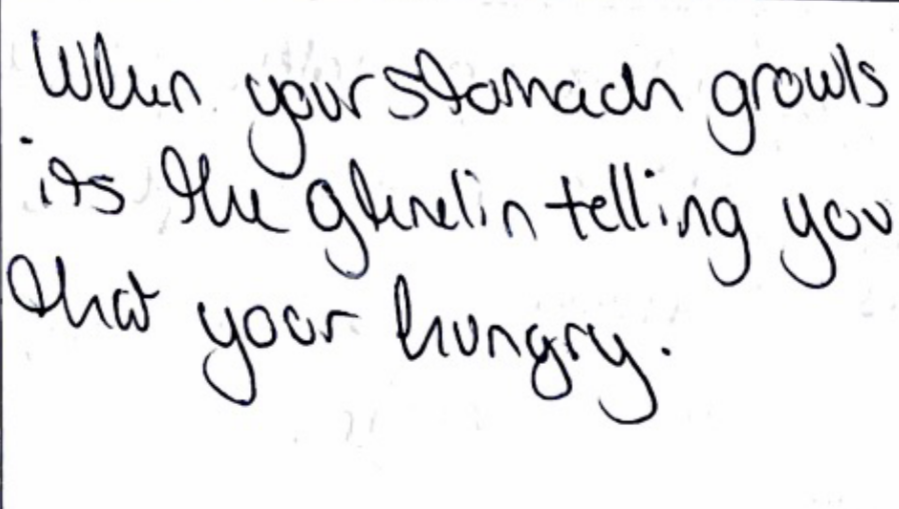 When your stomach growls
its the ghrelin telling you
that your hungry.